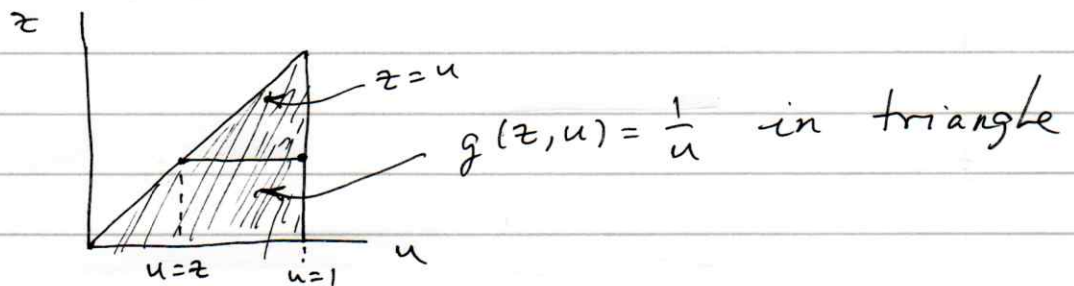 z
z = u
g(z,u) = 1/u in triangle
u
u=z
u=1